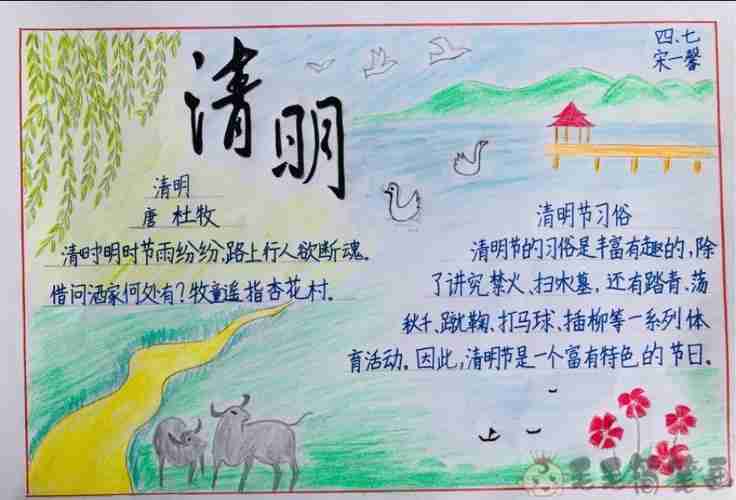 清明
四.七
宋一馨
清明
唐 杜牧
清时明时节雨纷纷,路上行人欲断魂。
借问酒家何处有?牧童遥指杏花村。
清明节习俗
清明节的习俗是丰富有趣的,除
了讲究禁火、扫水墓,还有踏青、荡
秋千、蹴鞠、打马球、插柳等一系列体
育活动。因此,清明节是一个富有特色的节日。
简笔画